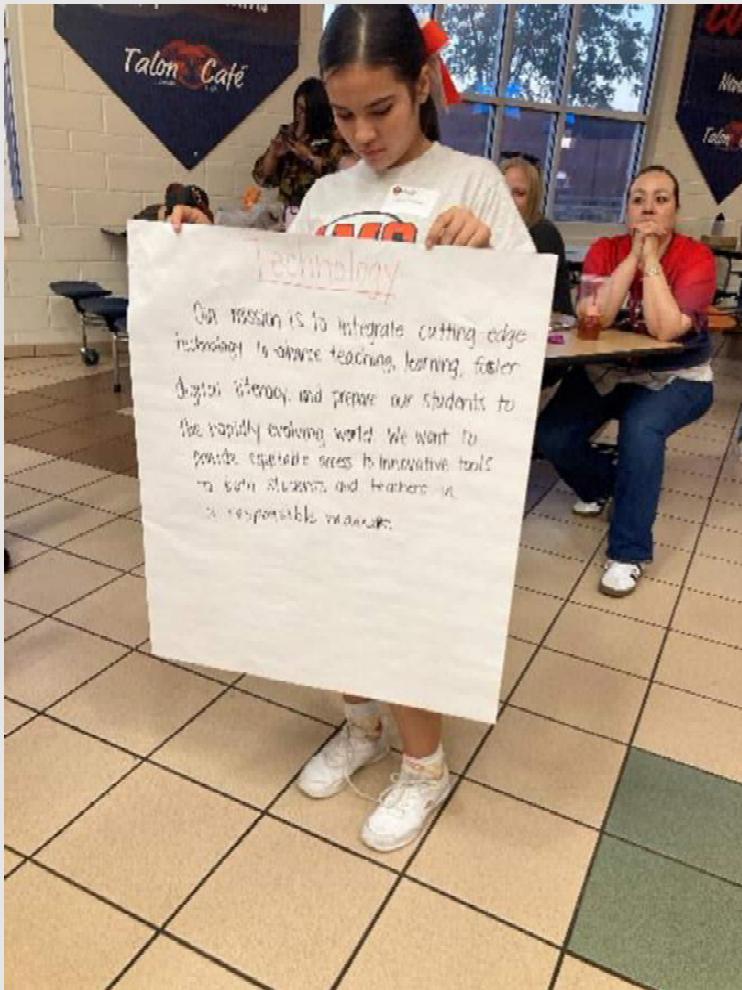 Talon Café
Technology
Our mission is to integrate cutting edge
technology to advance teaching, learning, foster
digital literacy, and prepare our students to
the rapidly evolving world. We want to
provide equitable access to innovative tools
to both students and teachers in
a responsible manner.